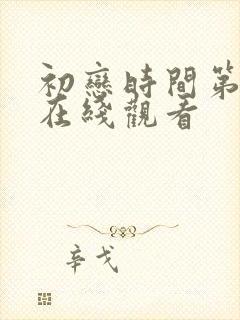 初戀時間第
在綫觀看
辛戈